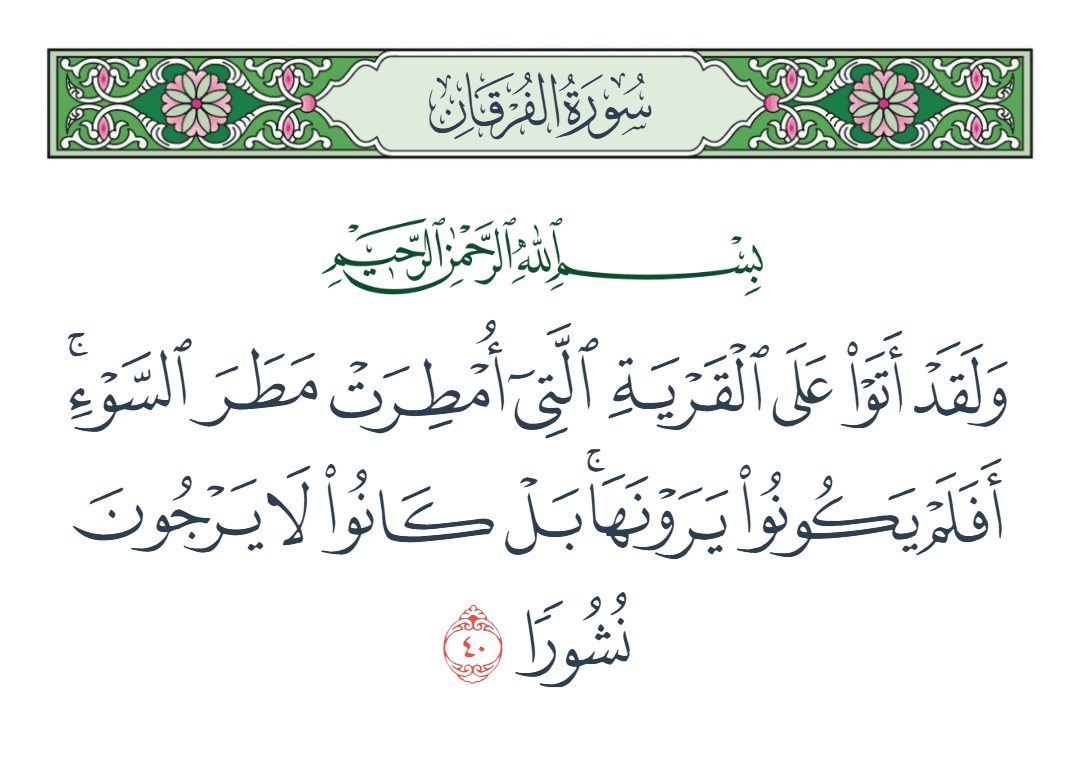 سُورَةُ الفُرْقَانِ
بِسْمِ ٱللَّهِ ٱلرَّحْمَٰنِ ٱلرَّحِيمِ
وَلَقَدْ أَتَوْا۟ عَلَى ٱلْقَرْيَةِ ٱلَّتِىٓ أُمْطِرَتْ مَطَرَ ٱلسَّوْءِ ۚ
أَفَلَمْ يَكُونُوا۟ يَرَوْنَهَا ۚ بَلْ كَانُوا۟ لَا يَرْجُونَ
نُشُورًا ٤٠